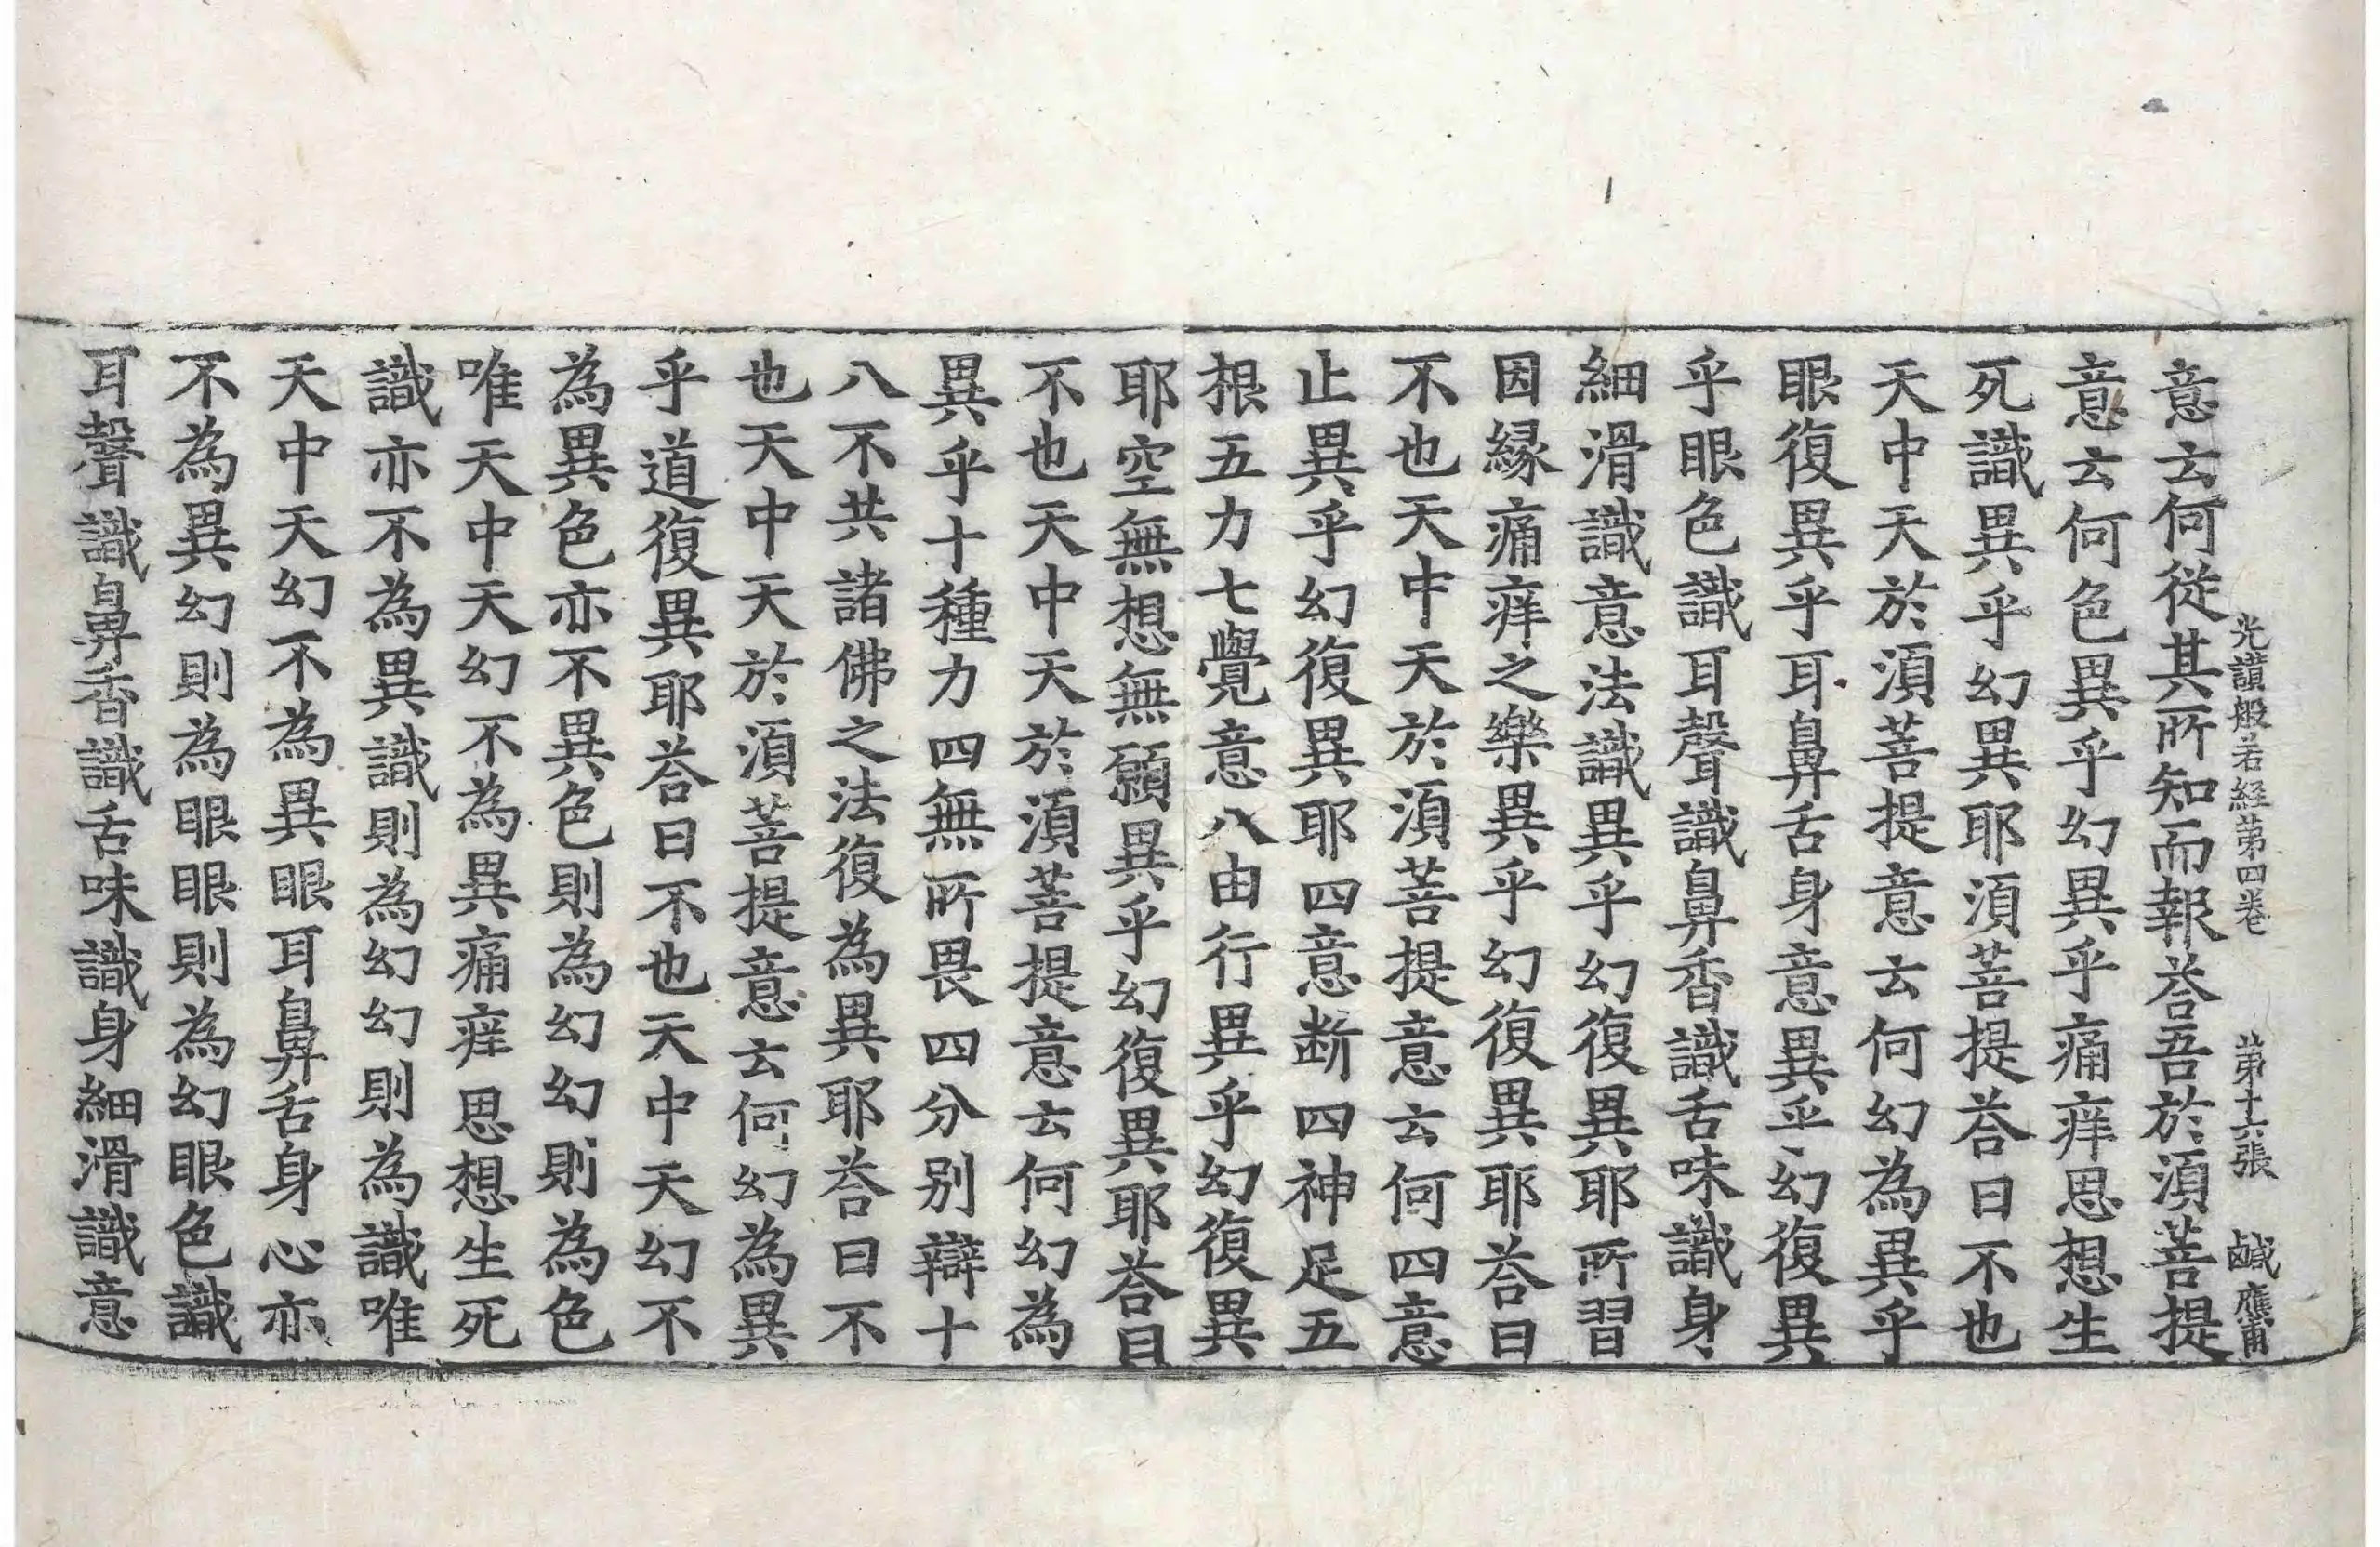 光讃般若経第四卷 第十六張 鹹 應甫
意云何從其所知而報荅吾於湏菩提
意云何色異乎幻異乎痛痒思想生
死識異乎幻異耶湏菩提荅曰不也
天中天於湏菩提意云何幻為異乎
眼復異乎耳鼻舌身意異乎幻復異
乎眼色識耳聲識鼻香識舌味識身
細滑識意法識異乎幻復異耶所習
因緣痛痒之樂異乎幻復異耶荅曰
不也天中天於湏菩提意云何四意
止異乎幻復異耶四意断四神足五
根五力七覺意八由行異乎幻復異
耶空無想無願異乎幻復異耶荅曰
不也天中天於湏菩提意云何幻為
異乎十種力四無所畏四分别辯十
八不共諸佛之法復為異耶荅曰不
也天中天於湏菩提意云何幻為異
乎道復異耶荅曰不也天中天幻不
為異色亦不異色則為幻幻則為色
唯天中天幻不為異痛痒思想生死
識亦不為異識則為幻幻則為識唯
天中天幻不為異眼耳鼻舌身心亦
不為異幻則為眼眼則為幻眼色識
耳聲識鼻香識舌味識身細滑識意